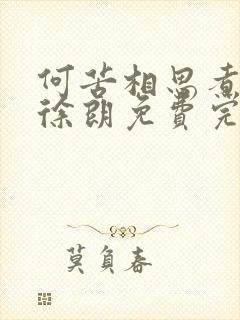 何苦相思煮
徐朗免费完
莫负春